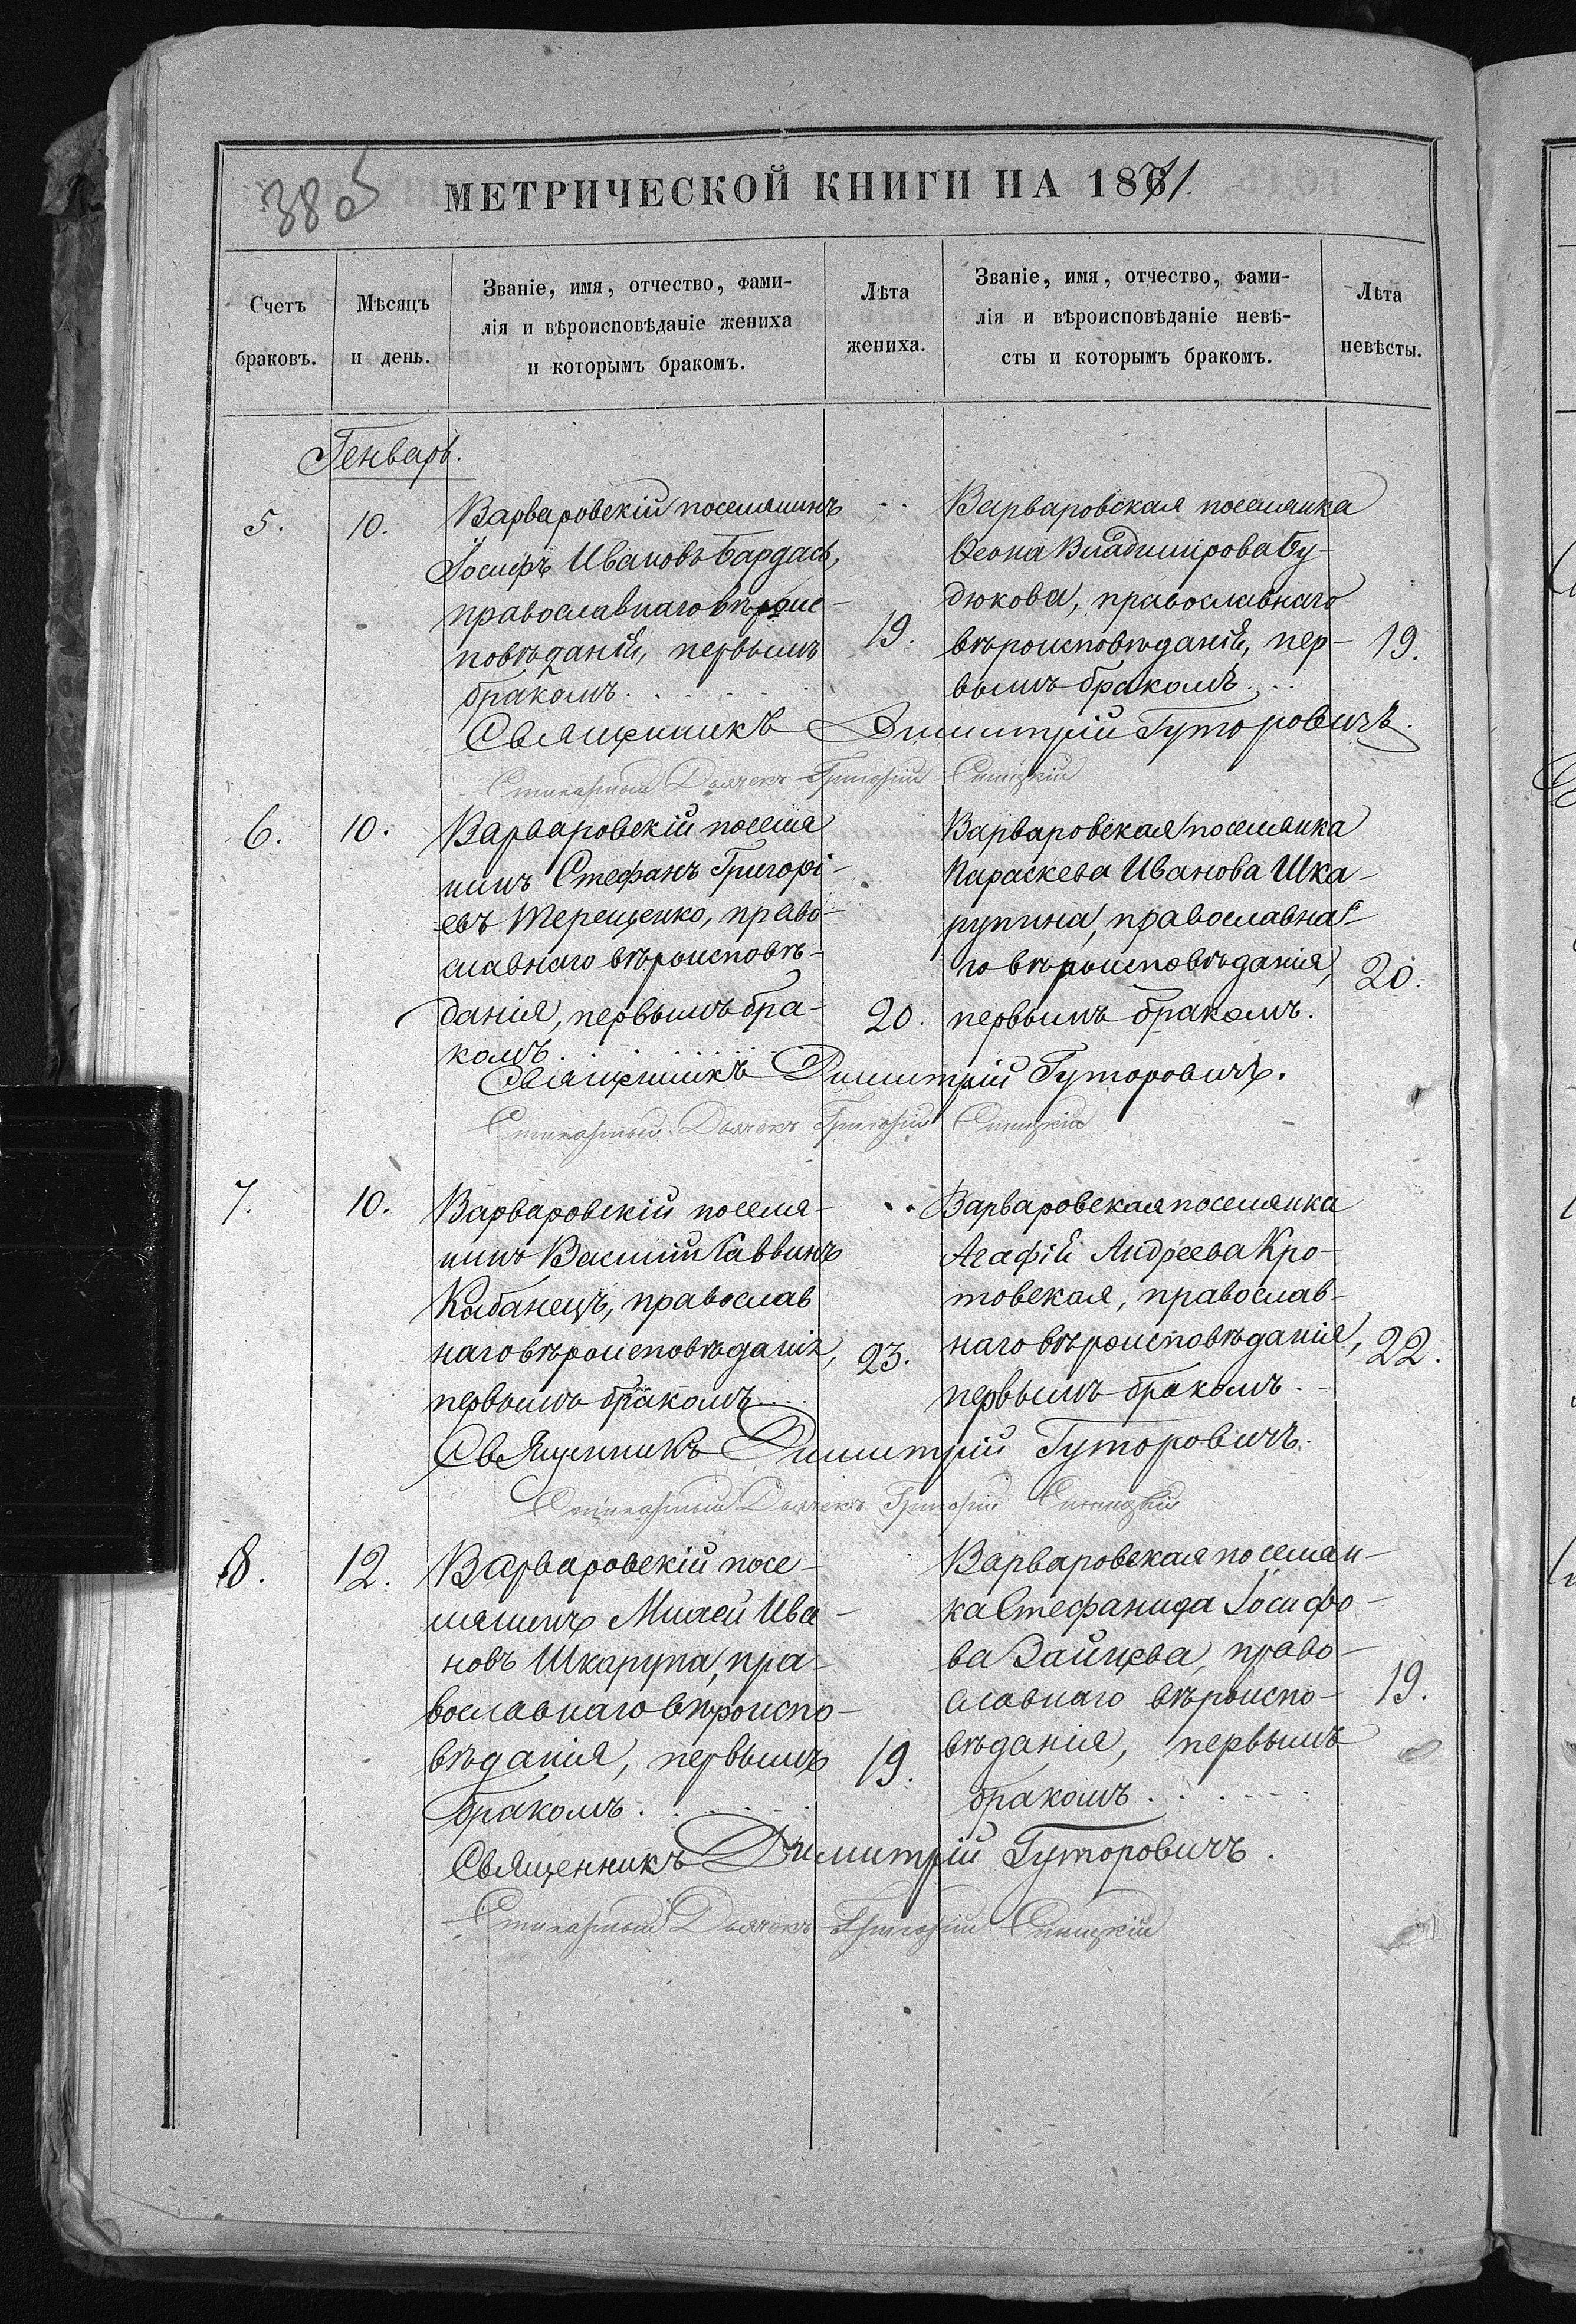 380
МЕТРИЧЕСКОЙ КНИГИ НА 1871.
Счетъ браковъ.
Мѣсяцъ и день.
Званіе, имя, отчество, фами-
лія и вѣроисповѣданіе жениха
и которымъ бракомъ.
Лѣта жениха.
Званіе, имя, отчество, фами-
лія и вѣроисповѣданіе невѣ-
сты и которымъ бракомъ.
Лѣта невѣсты.
Генварь.
5.
10.
Варваровскій поселянинъ
Іосифъ Ивановъ Бардась,
православнаго вѣроис-
повѣданія, первымъ
бракомъ.
19.
Варваровская поселянка
Ѳеона Владимірова Бу-
дюкова, православнаго
вѣроисповѣданія, пер-
вымъ бракомъ.
19.
Священникъ Димитрій Гуторовичъ.
Стихарный Дьячекъ Григорій
6.
10.
Варваровскій поселя
нинъ Стефанъ Григорі-
евъ Терещенко, право-
славнаго вѣроисповѣ-
данія, первымъ бра-
комъ.
20.
Варваровская поселянка
Параскева Иванова Шка-
рупина, православна-
го вѣроисповѣданія,
первымъ бракомъ.
20.
Священникъ Димитрій Гуторовичъ.
Стихарный Дьячекъ Григорій
7.
10.
Варваровскій поселя-
нинъ Василій Саввинъ
Кабанецъ, православ
наго вѣроисповѣданія,
первымъ бракомъ
23.
Варваровская поселянка
Агафія Андреева Кро-
товская, православ-
наго вѣроисповѣданія,
первымъ бракомъ.
22.
Священникъ Димитрій Гуторовичъ.
Стихарный Дьячекъ Григорій
8.
12.
Варваровскій посе-
лянинъ Михей Ива-
новъ Шкарупа, пра-
вославнаго вѣроиспо-
вѣданія, первымъ
бракомъ.
19.
Варваровская поселян-
ка Стефанида Іосифо-
ва Зайцева, право-
славнаго вѣроиспо-
вѣданія, первымъ
бракомъ
19.
Священникъ Димитрій Гуторовичъ.
Стихарный Дьячекъ Григорій